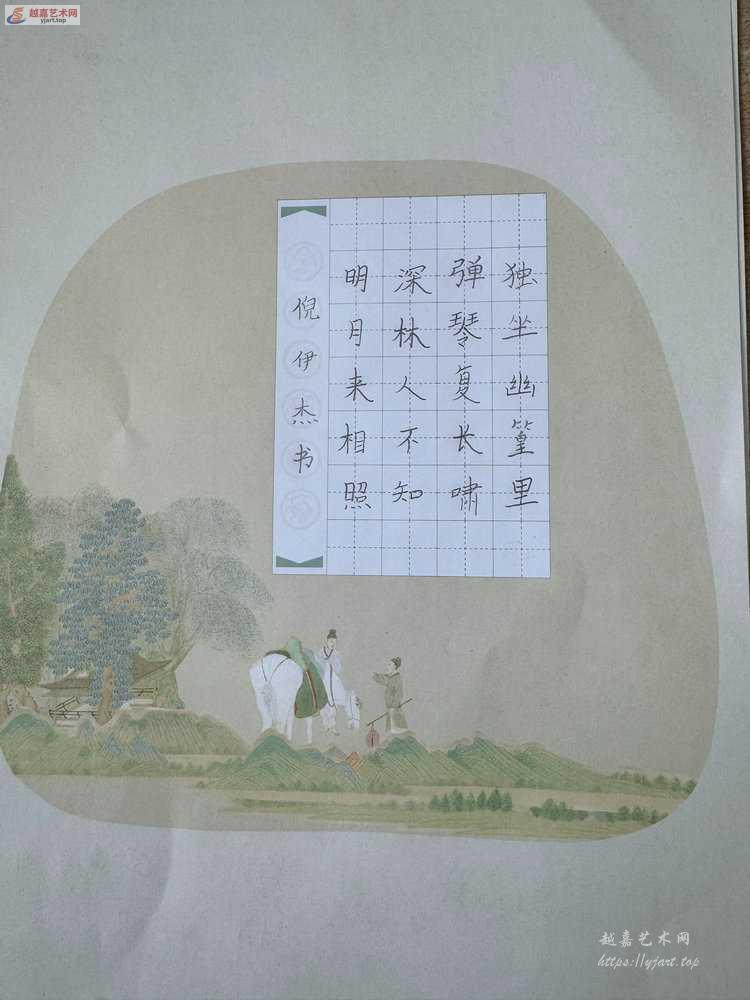 越嘉艺术网
yjart.top
独坐幽篁里
弹琴复长啸
深林人不知
明月来相照
倪伊杰书
越嘉艺术网
https://yjart.top